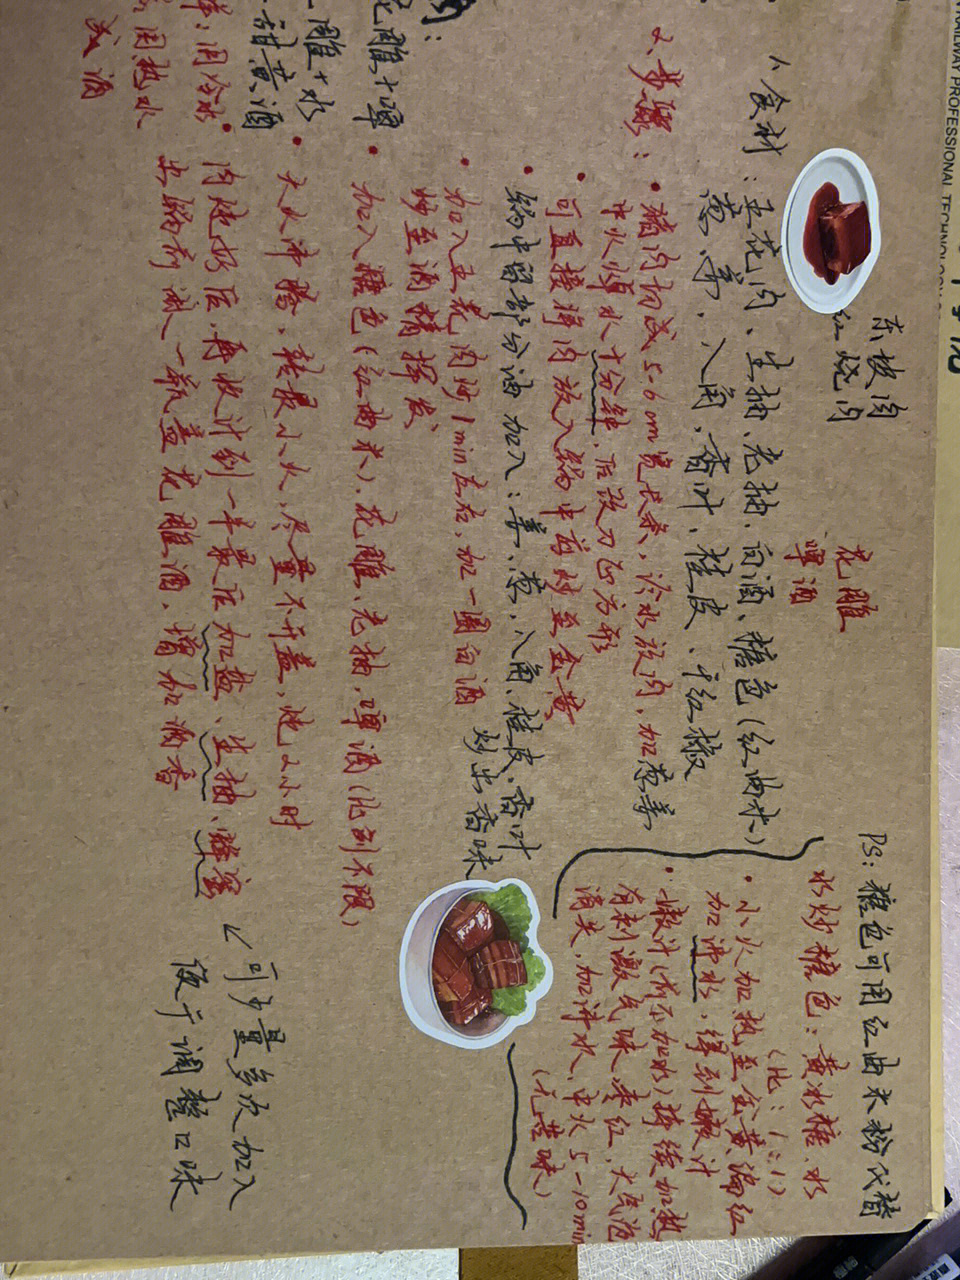 东坡肉
红烧肉
花雕
啤酒
1、食材：五花肉、生抽、老抽、白酒、糖色(红曲米)
葱、姜、八角、香叶、桂皮、干红椒
2、步骤：
• 猪肉切成5-6cm宽长条，冷水放肉，加葱姜
中火焯水十分钟，后改刀正方形
• 可直接将肉放入锅中煸炒至金黄
• 锅中留部分油加入：姜、葱、八角、桂皮、香叶
炒出香味
• 加入五花肉炒1min左右，加一圈白酒
炒至酒精挥发、
• 加入糖色(红曲米)、花雕、老抽，啤酒(比列不限)
• 大火沸腾，转最小火，尽量不开盖，炖2小时
• 肉炖好后，再收汁到一半最后加盐、生抽、蜂蜜
出锅前淋一瓶盖花雕酒、增加酒香
可少量多次加入
便于调整口味
PS：糖色可用红曲米粉代替
水炒糖色：黄冰糖、水
(比：1:1)
• 小火加热至金黄偏红
加沸水，得到嫩汁
• 嫩汁(而不加水)持续加热
有刺激气味，枣红，大气泡
消失，加沸水、中火5-10min
(无苦味)
花雕+啤
雕+水
甜黄酒
用冷水
用热水
或酒
RAILWAY PROFESSIONAL TECHNOLOG